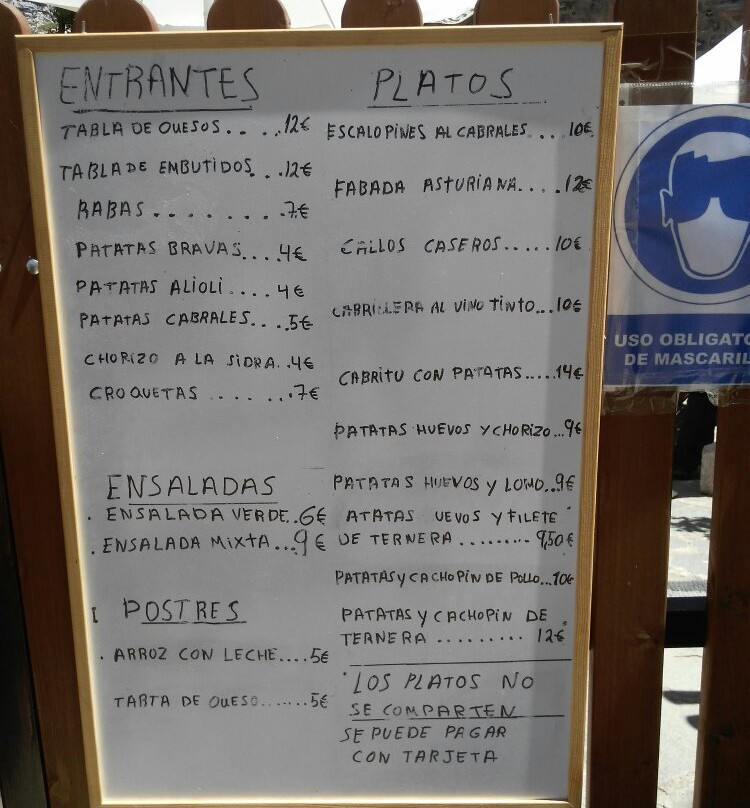 ENTRANTES
TABLA DE QUESOS.. . ..12€
TABLA DE EMBUTIDOS. . ..12€
RABAS . . . . . . . .7€
PATATAS BRAVAS....4€
PATATAS ALIOLI .... 4€
PATATAS CABRALES....5€
CHORIZO A LA SIDRA..4€
CROQUETAS . . . . ...7€
ENSALADAS
. ENSALADA VERDE..6€
. ENSALADA MIXTA...9€
POSTRES
. ARROZ CON LECHE....5€
TARTA DE QUESO.......5€
PLATOS
ESCALOPINES AL CABRALES... 10€
FABADA ASTURIANA....12€
CALLOS CASEROS.....10€
CABRILLERA AL VINO TINTO...10€
CABRITU CON PATATAS.....14€
PATATAS HUEVOS Y CHORIZO...9€
PATATAS HUEVOS Y LOMO..9€
ATATAS UEVOS Y FILETE
DE TERNERA .........9,50€
PATATAS Y CACHOPIN DE POLLO...10€
PATATAS Y CACHOPIN DE
TERNERA ......... 12€
LOS PLATOS NO
SE COMPARTEN
SE PUEDE PAGAR
CON TARJETA
USO OBLIGATO
DE MASCARIL